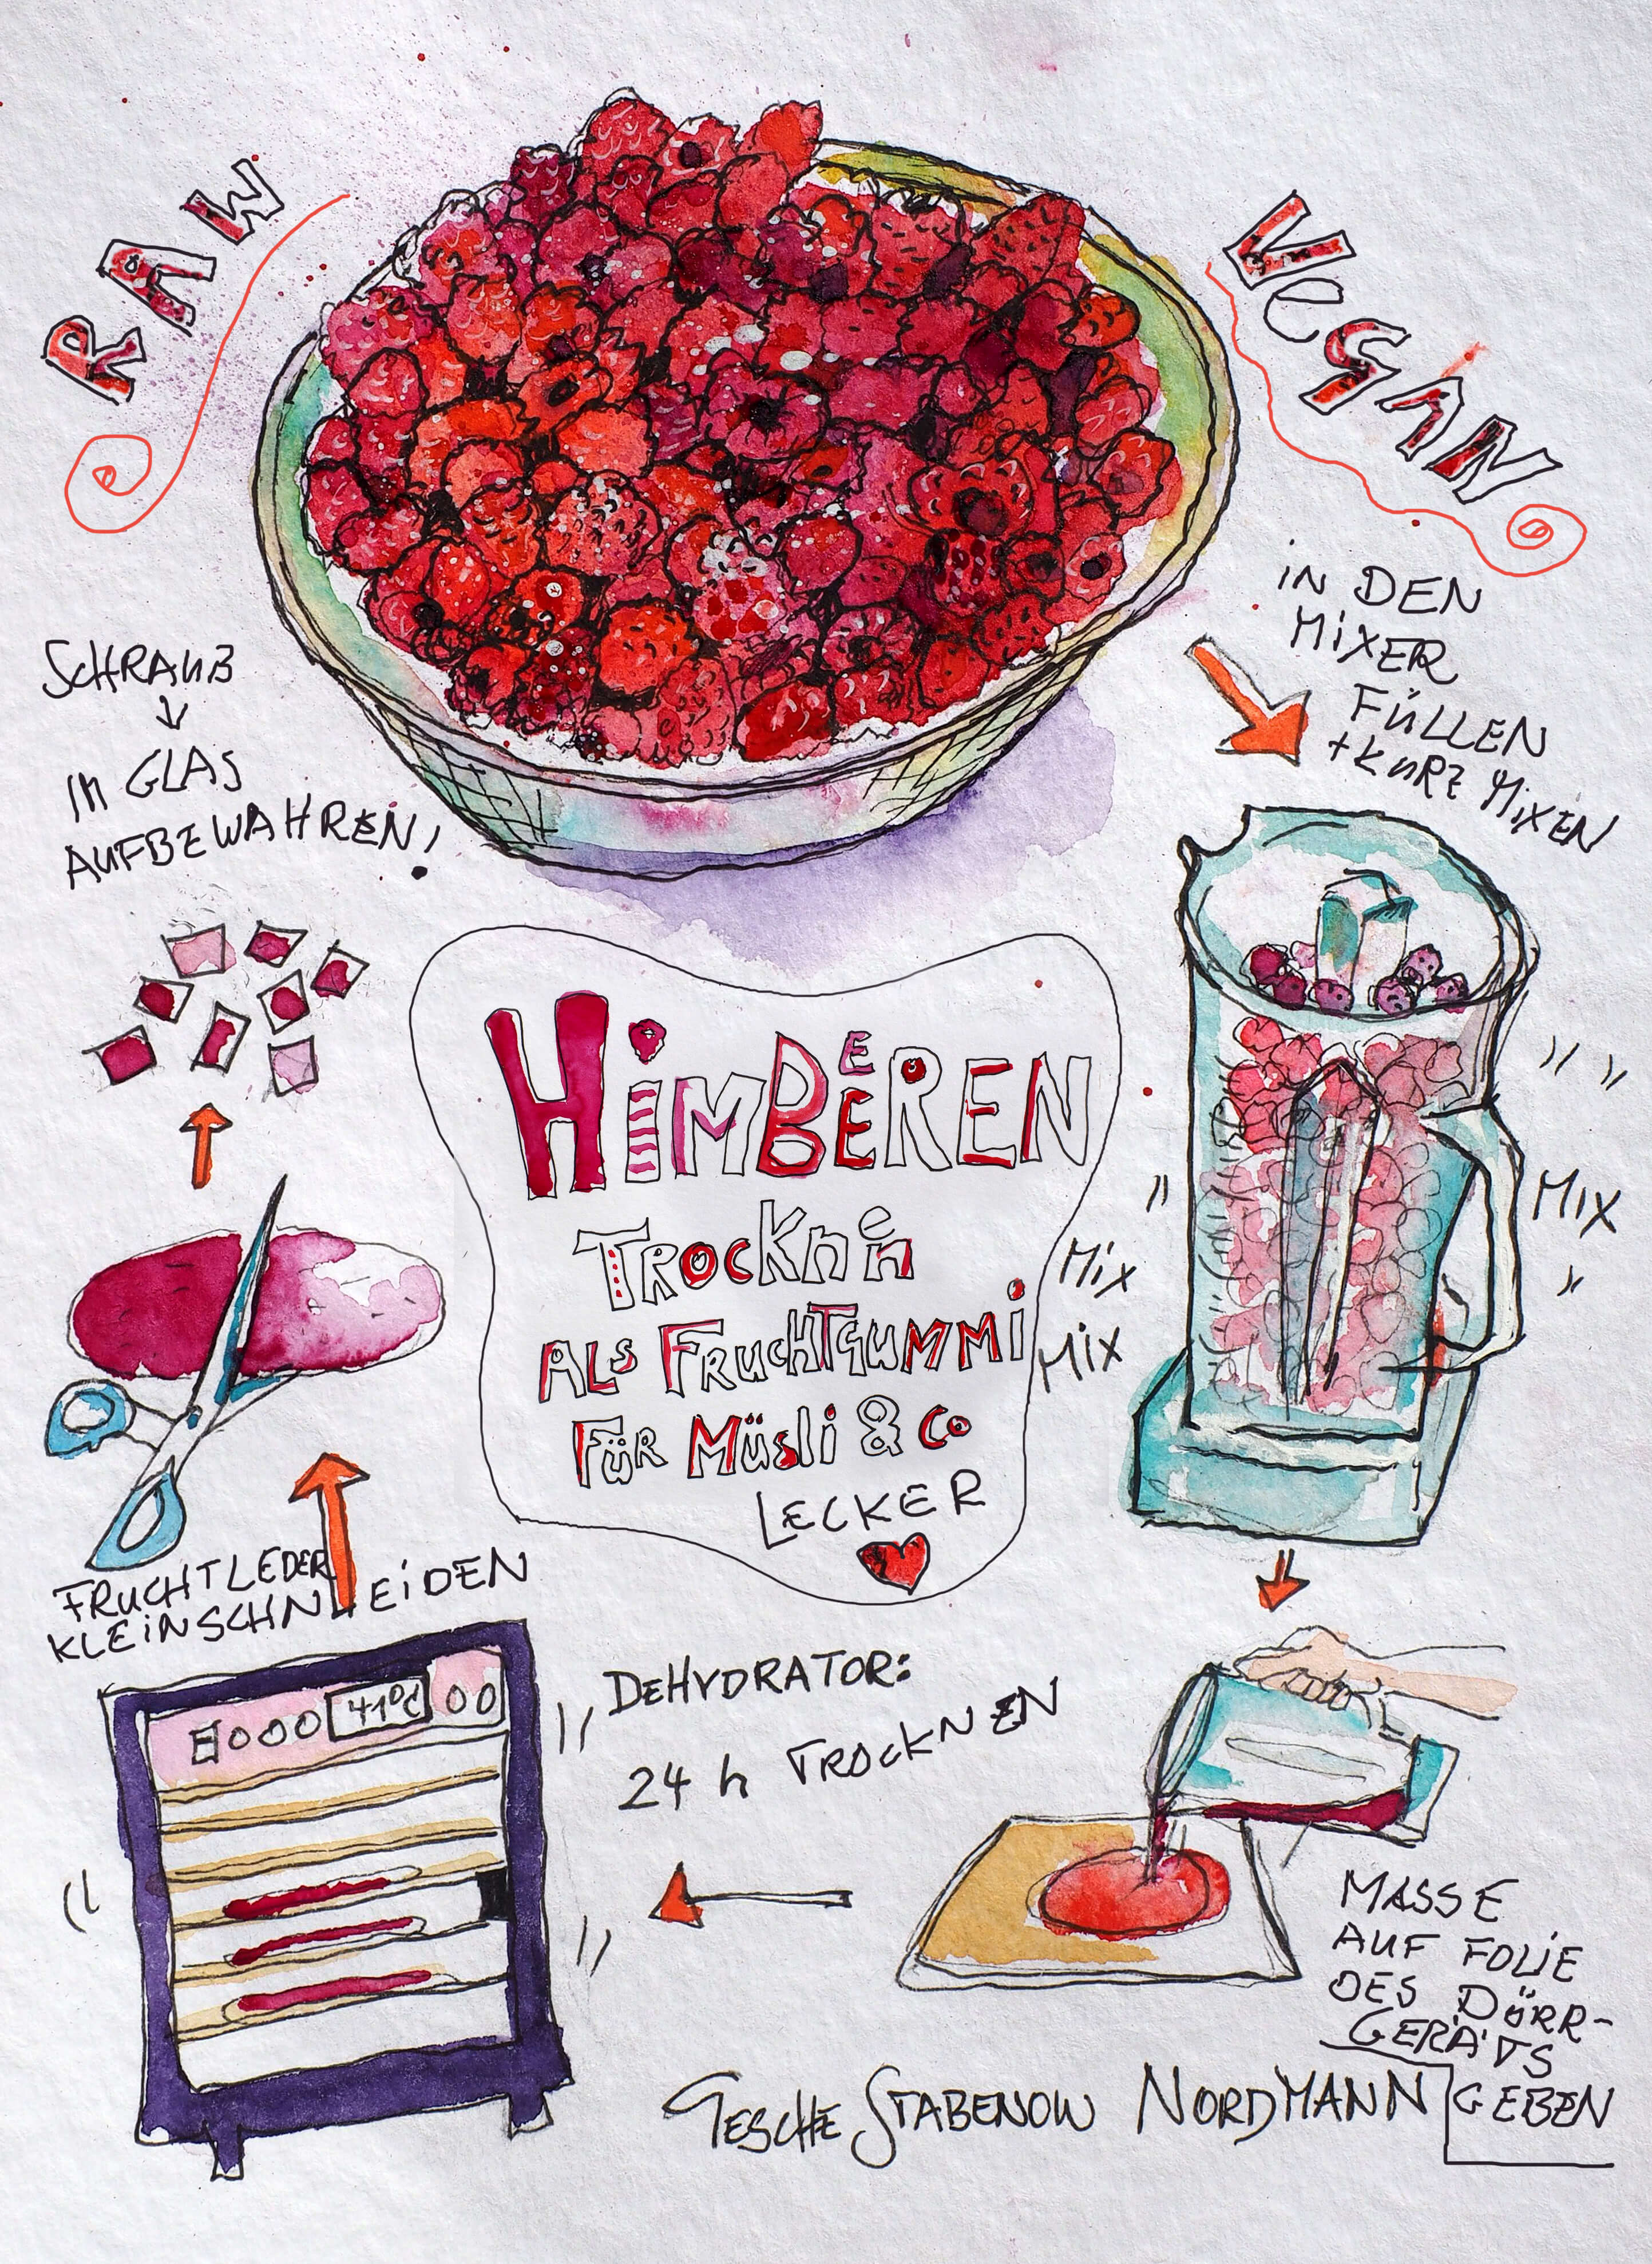 RAW
VEGAN
iN DEN
MiXER
FÜLLEN
+ KURZ MiXEN
SCHRAUB
↓
IM GLAS
AUFBEWAHREN!
HiMBEEREN
TROCKNEN
ALS FRUCHTGUMMi
FÜR MÜSLi & Co
LECKER
MIX
Mix
MiX
FRUCHTLEDER
KLEiNSCHNEiDEN
DEHYDRATOR:
24 h TROCKNEN
41°C
MASSE
AUF FOLiE
DES DÖRR-
GERÄTS
GEBEN
TESCHE STABENOW NORDMANN